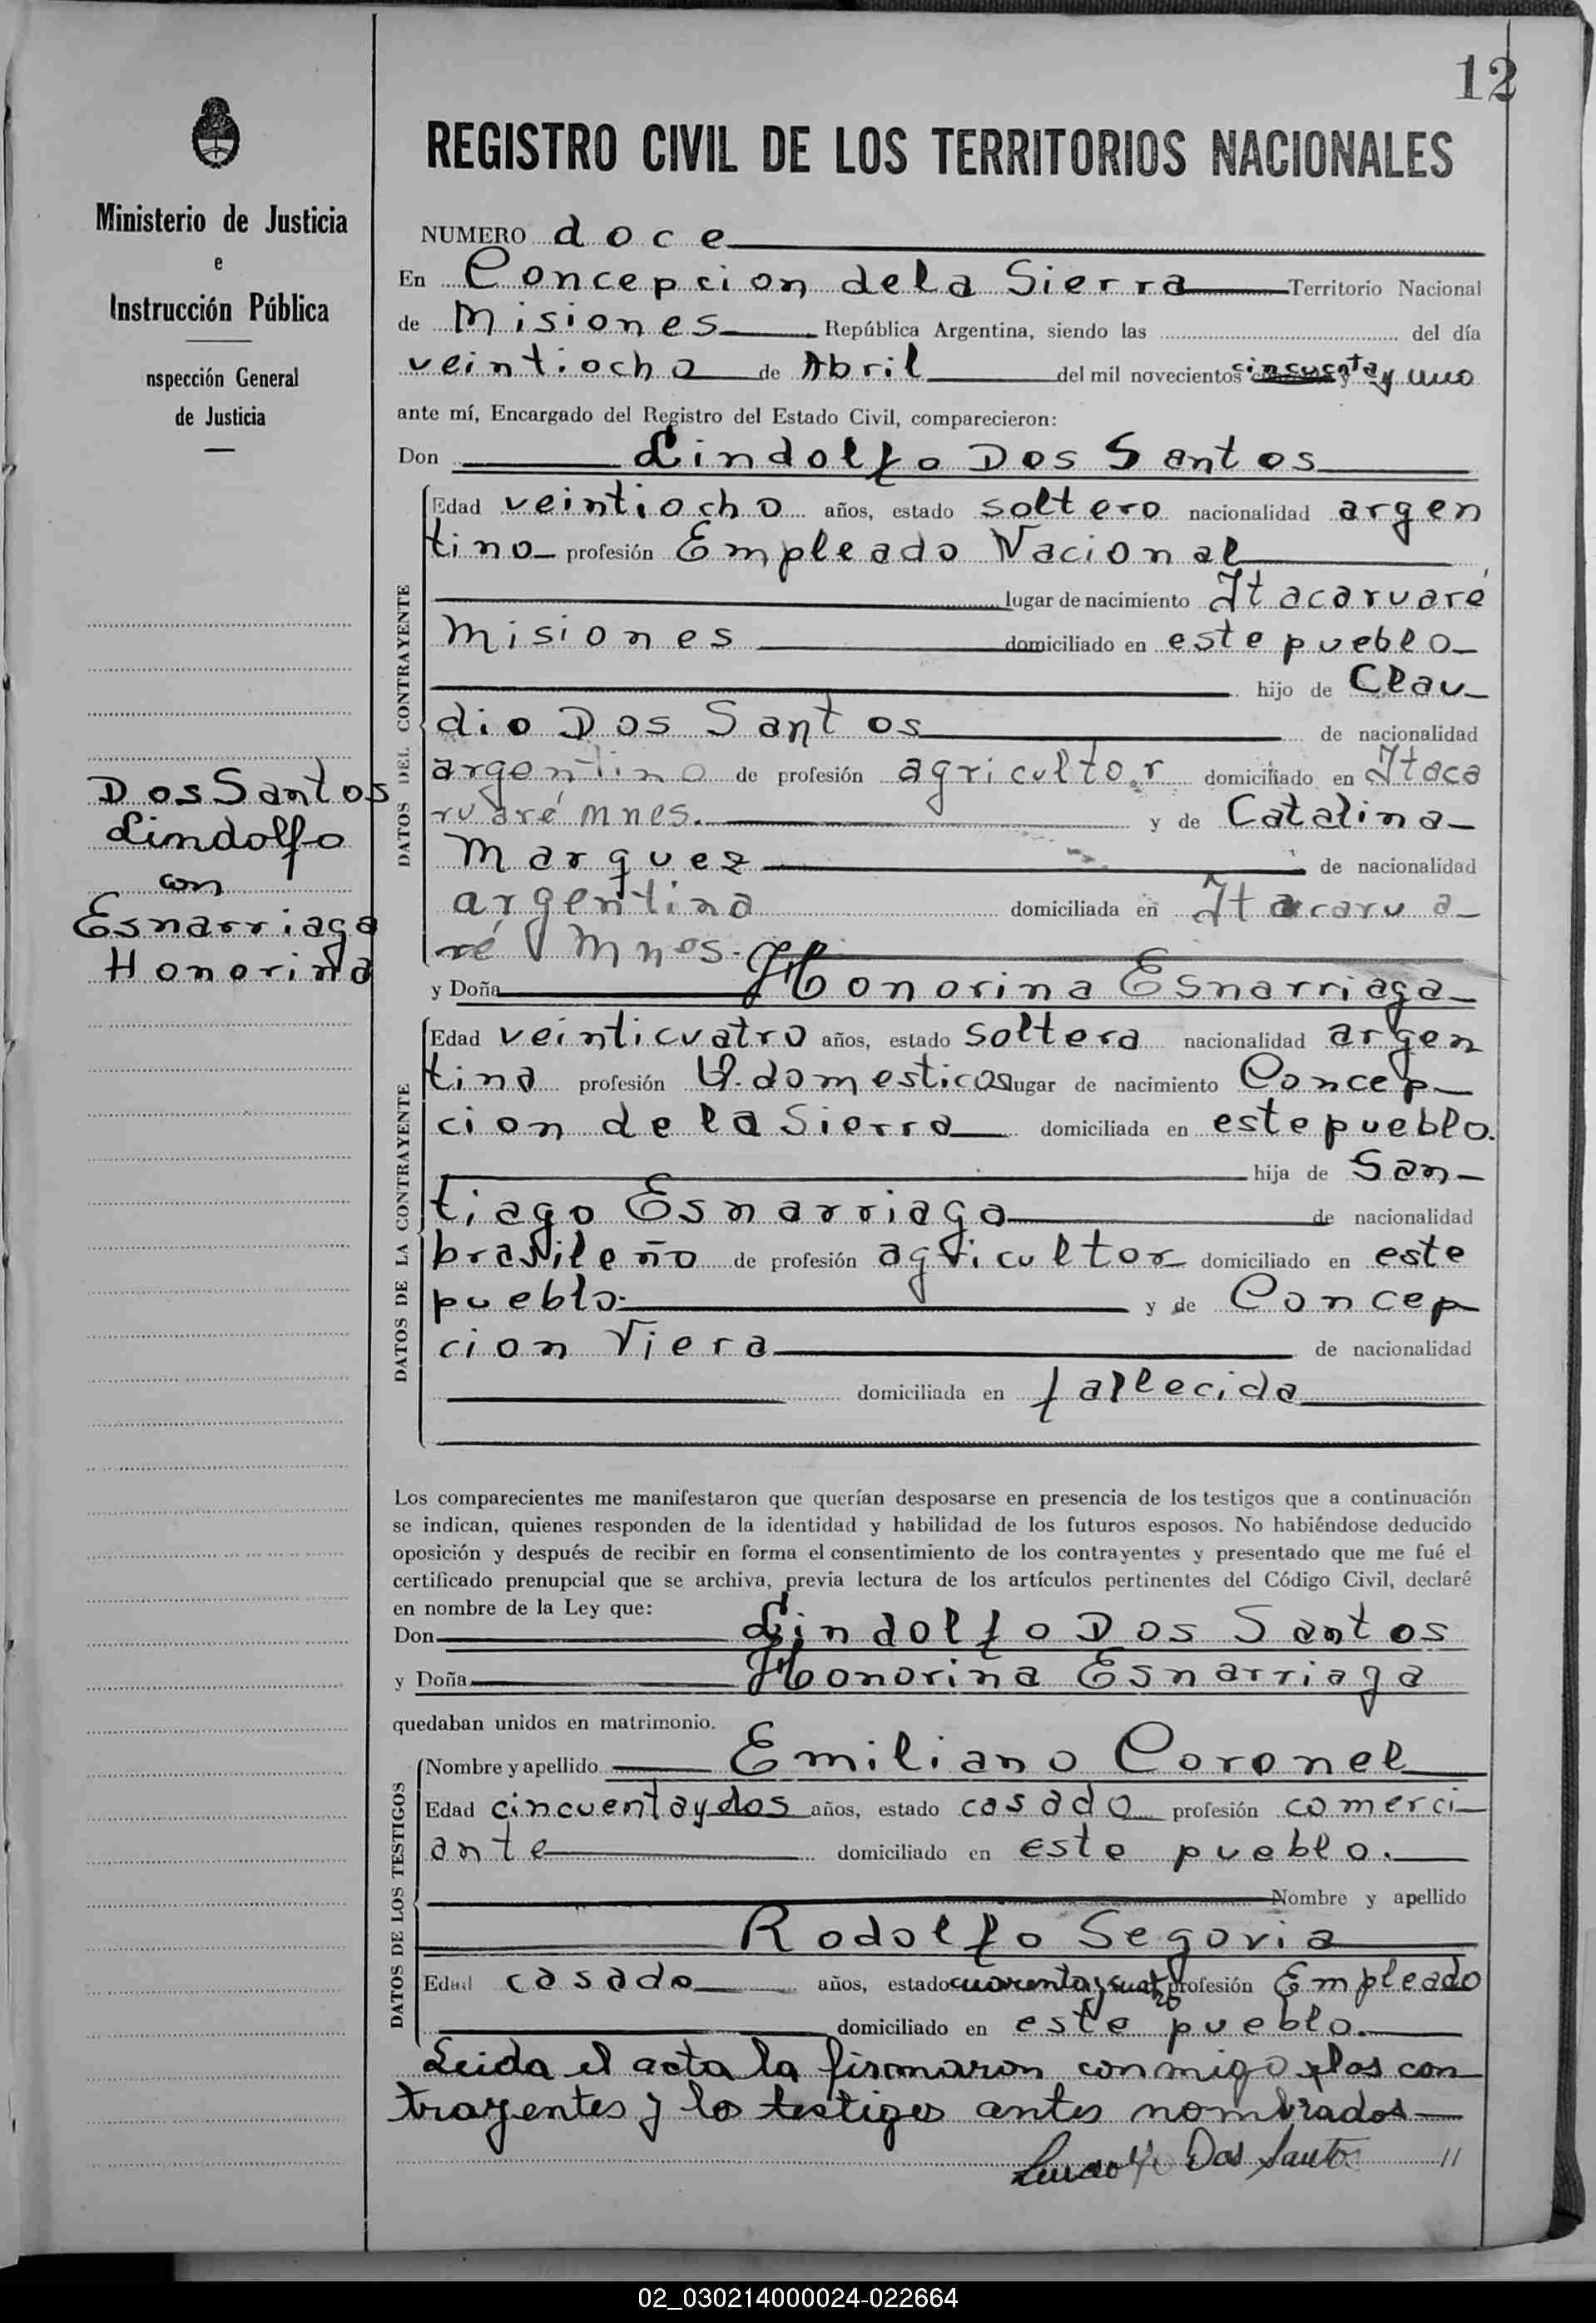 12
REGISTRO CIVIL DE LOS TERRITORIOS NACIONALES
Ministerio de Justicia
e
Instrucción Pública
nspección General
de Justicia
Dos Santos
Lindolfo
con
Esnarriaga
Honorina
NUMERO doce
En Concepcion dela Sierra Territorio Nacional
de Misiones República Argentina, siendo las del día
veintiocho de Abril del mil novecientos cincuenta y uno
ante mí, Encargado del Registro del Estado Civil, comparecieron:
Don Lindolfo Dos Santos
DATOS DEL CONTRAYENTE
Edad veintiocho años, estado soltero nacionalidad argen
tino profesión Empleado Nacional
lugar de nacimiento Itacaruaré
Misiones domiciliado en este pueblo
hijo de Clau-
dio Dos Santos de nacionalidad
argentino de profesión agricultor domiciliado en Itaca
ruaré Mnes. y de Catalina
Marquez de nacionalidad
argentina domiciliada en Itacarua-
ré Mnes.
y Doña Honorina Esnarriaga
DATOS DE LA CONTRAYENTE
Edad veinticuatro años, estado soltera nacionalidad argen
tina profesión Q. domesticos lugar de nacimiento Concep-
cion de la Sierra domiciliada en este pueblo.
hija de San-
tiago Esnarriaga de nacionalidad
brasileño de profesión agricultor domiciliado en este
pueblo. y de Concep
cion Viera de nacionalidad
domiciliada en fallecida
Los comparecientes me manifestaron que querían desposarse en presencia de los testigos que a continuación
se indican, quienes responden de la identidad y habilidad de los futuros esposos. No habiéndose deducido
oposición y después de recibir en forma el consentimiento de los contrayentes y presentado que me fué el
certificado prenupcial que se archiva, previa lectura de los artículos pertinentes del Código Civil, declaré
en nombre de la Ley que:
Don Lindolfo Dos Santos
y Doña Honorina Esnarriaga
quedaban unidos en matrimonio.
DATOS DE LOS TESTIGOS
Nombre y apellido Emiliano Coronel
Edad cincuentaydos años, estado casado profesión comerci-
ante domiciliado en este pueblo.
Nombre y apellido
Rodolfo Segovia
Edad casado años, estado cuarentaycuatro profesión Empleado
domiciliado en este pueblo.
Leida el acta la firmaron conmigo los con
trayentes y los testigos antes nombrados
Lindolfo Dos Santos //
02_030214000024-022664